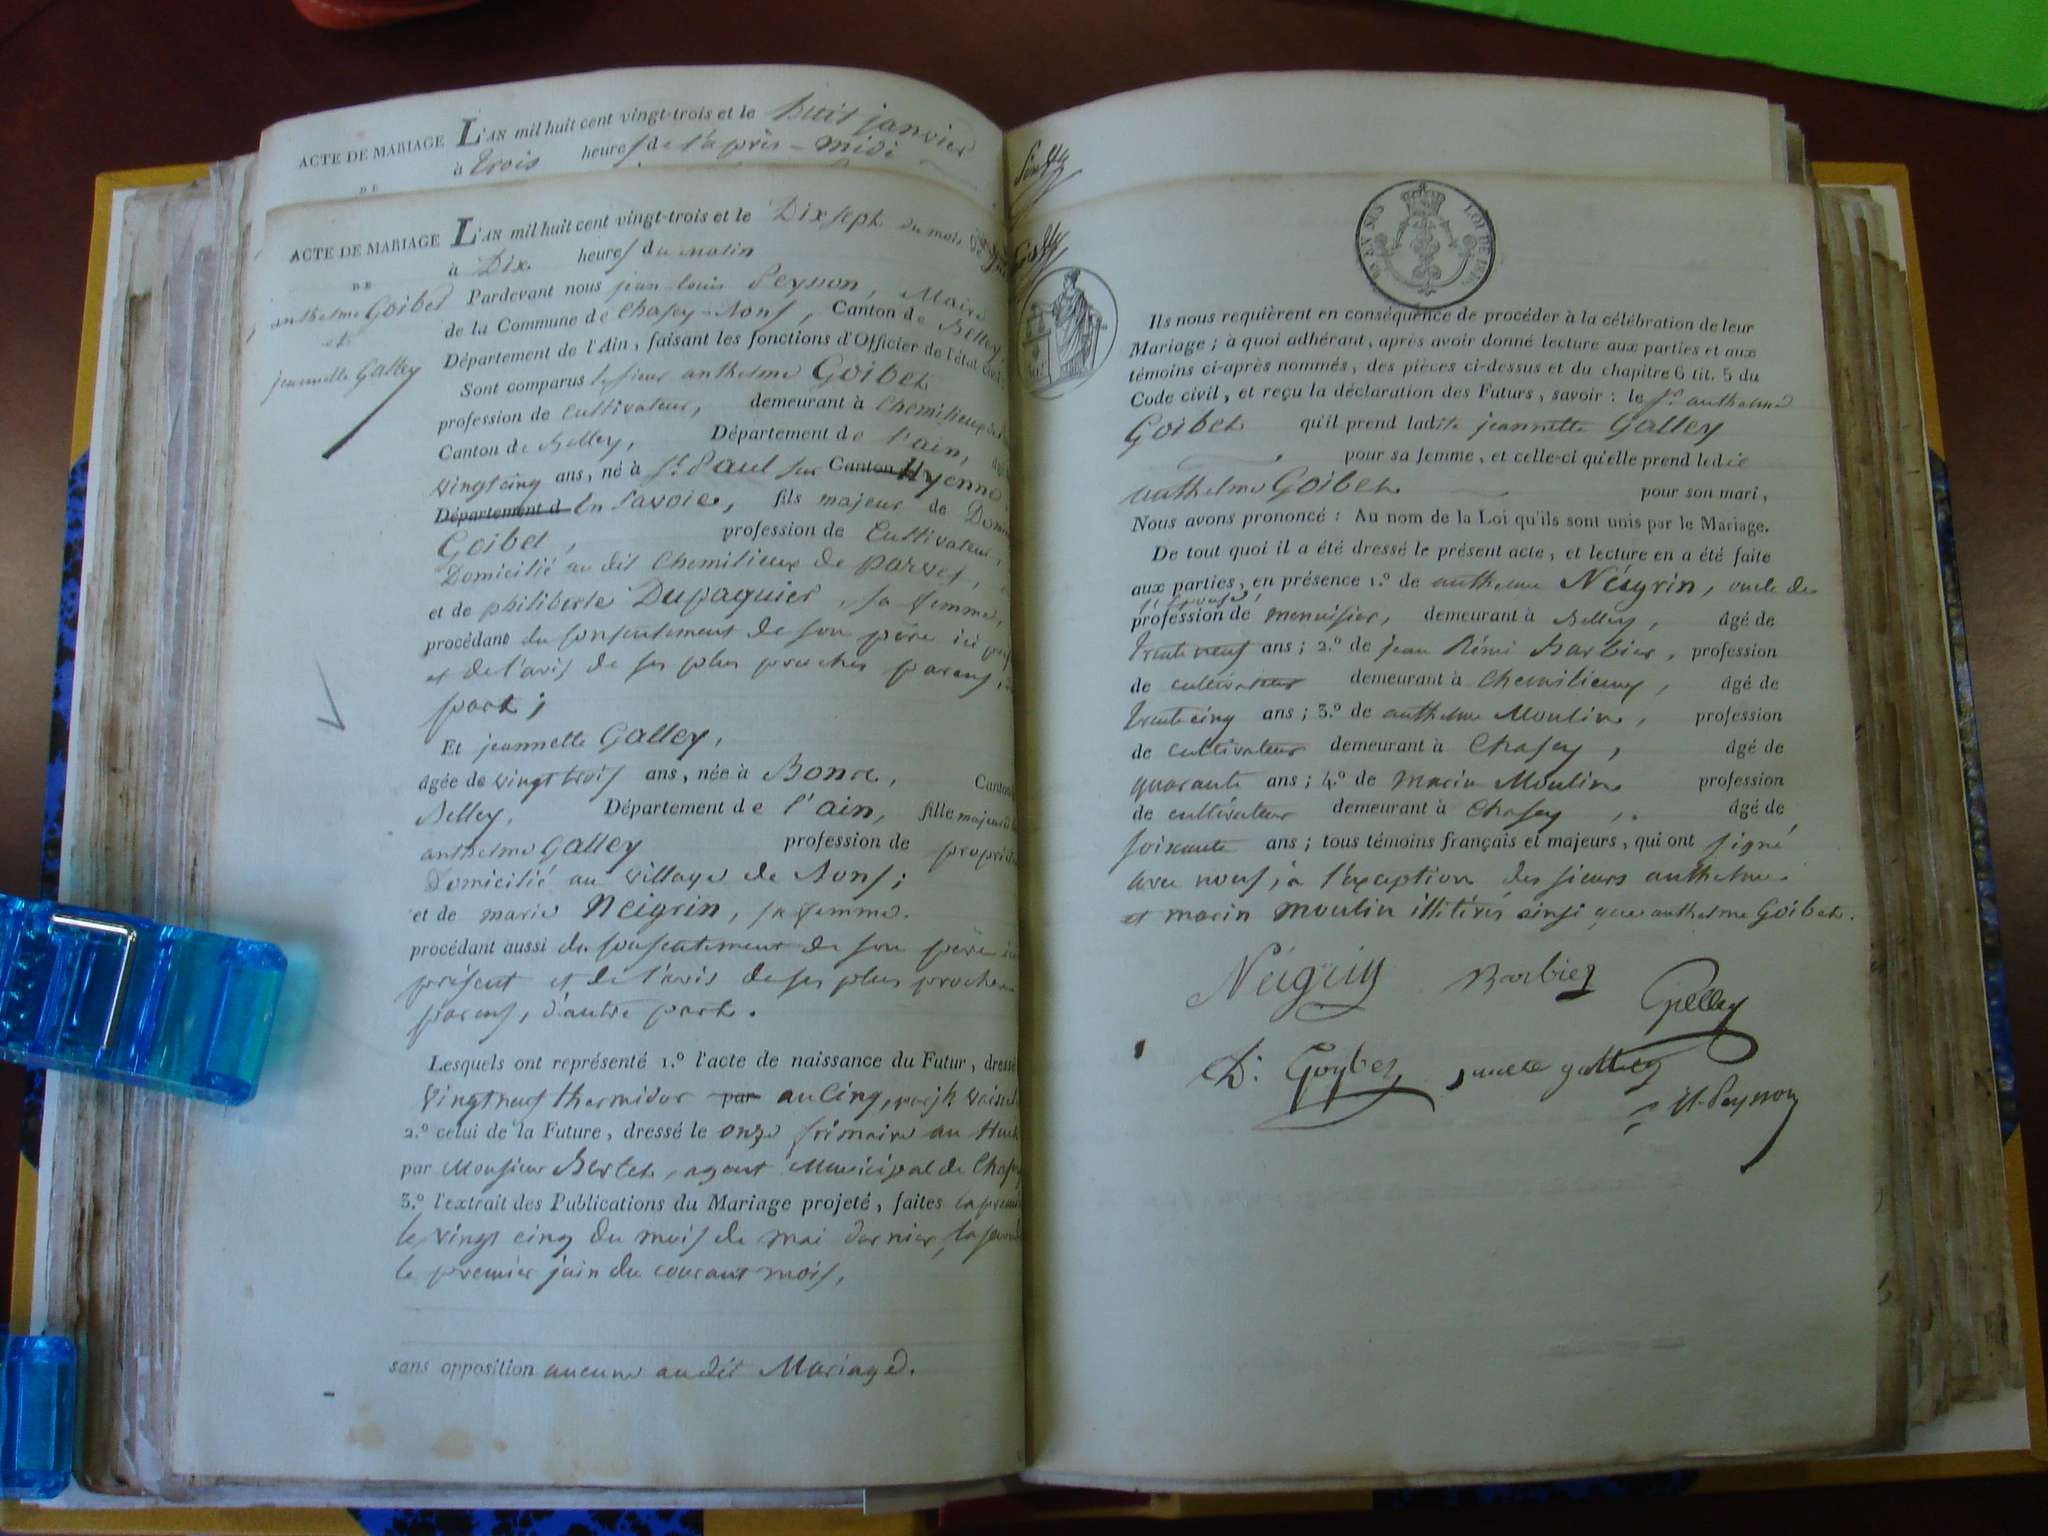 ACTE DE MARIAGE L'AN mil huit cent vingt-trois et le huit janvier
DE à trois heures de l'après-midi
ACTE DE MARIAGE L'AN mil huit cent vingt-trois et le Dix sept du mois de
DE à Dix heures du matin
anthelme Goibet
et
jeannette Galley
Pardevant nous jean-louis Peysson, Maire
de la Commune de Chasey-Bons, Canton de Belley,
Département de l'Ain, faisant les fonctions d'Officier de l'état civil
Sont comparus le sieur anthelme Goibet
profession de Cultivateur, demeurant à Chemilieux
Canton de Belley, Département de l'ain,
vingt cinq ans, né à St Paul sur Canton Hyenne
Département d en Savoie, fils majeur de
Goibet, profession de Cultivateur,
Domicilié au dit Chemilieux de parves,
et de philiberte Dupaquier, sa femme,
procédant du consentement de son père ici
et de l'avis de ses plus proches parens,
part;
Et jeannette Galley,
âgée de vingt trois ans, née à Bons, Canton
Belley, Département de l'ain, fille majeure
anthelme Galley profession de
Domicilié au village de Bons;
et de marie Neigrin, sa femme.
procédant aussi du consentement de son père
présent et de l'avis de ses plus proches
parens, d'autre part.
Lesquels ont représenté 1.º l'acte de naissance du Futur, dressé
vingt neuf thermidor par an Cinq,
2.º celui de la Future, dressé le onze frimaire an huit
par Monsieur Bertet, agent Municipal de
3.º l'extrait des Publications du Mariage projeté, faites la
le vingt cinq du mois de mai dernier, la
le premier juin du courant mois,
sans opposition aucune audit Mariage.
LOI DE
Ils nous requièrent en conséquence de procéder à la célébration de leur
Mariage; à quoi adhérant, après avoir donné lecture aux parties et aux
témoins ci-après nommés, des pièces ci-dessus et du chapitre 6 tit. 5 du
Code civil, et reçu la déclaration des Futurs, savoir: le Sr anthelme
Goibet qu'il prend ladite jeannette Galley
pour sa femme, et celle-ci qu'elle prend ledit
anthelme Goibet pour son mari,
Nous avons prononcé: Au nom de la Loi qu'ils sont unis par le Mariage.
De tout quoi il a été dressé le présent acte, et lecture en a été faite
aux parties, en présence 1.º de anthelme Néigrin, oncle de
l'épouse,
profession de menuisier, demeurant à Belley, âgé de
trente neuf ans; 2.º de jean Rémi Barbier, profession
de cultivateur demeurant à Chemilieux, âgé de
trente cinq ans; 3.º de anthelme Moulin, profession
de cultivateur demeurant à Chasey, âgé de
quarante ans; 4.º de marin Moulin profession
de cultivateur demeurant à Chasey, âgé de
soixante ans; tous témoins français et majeurs, qui ont signé
avec nous, à l'exception des sieurs anthelme
et marin moulin illitérés ainsi que anthelme Goibet.
Néigrin Barbier Galley
D: Goybet galley Peysson